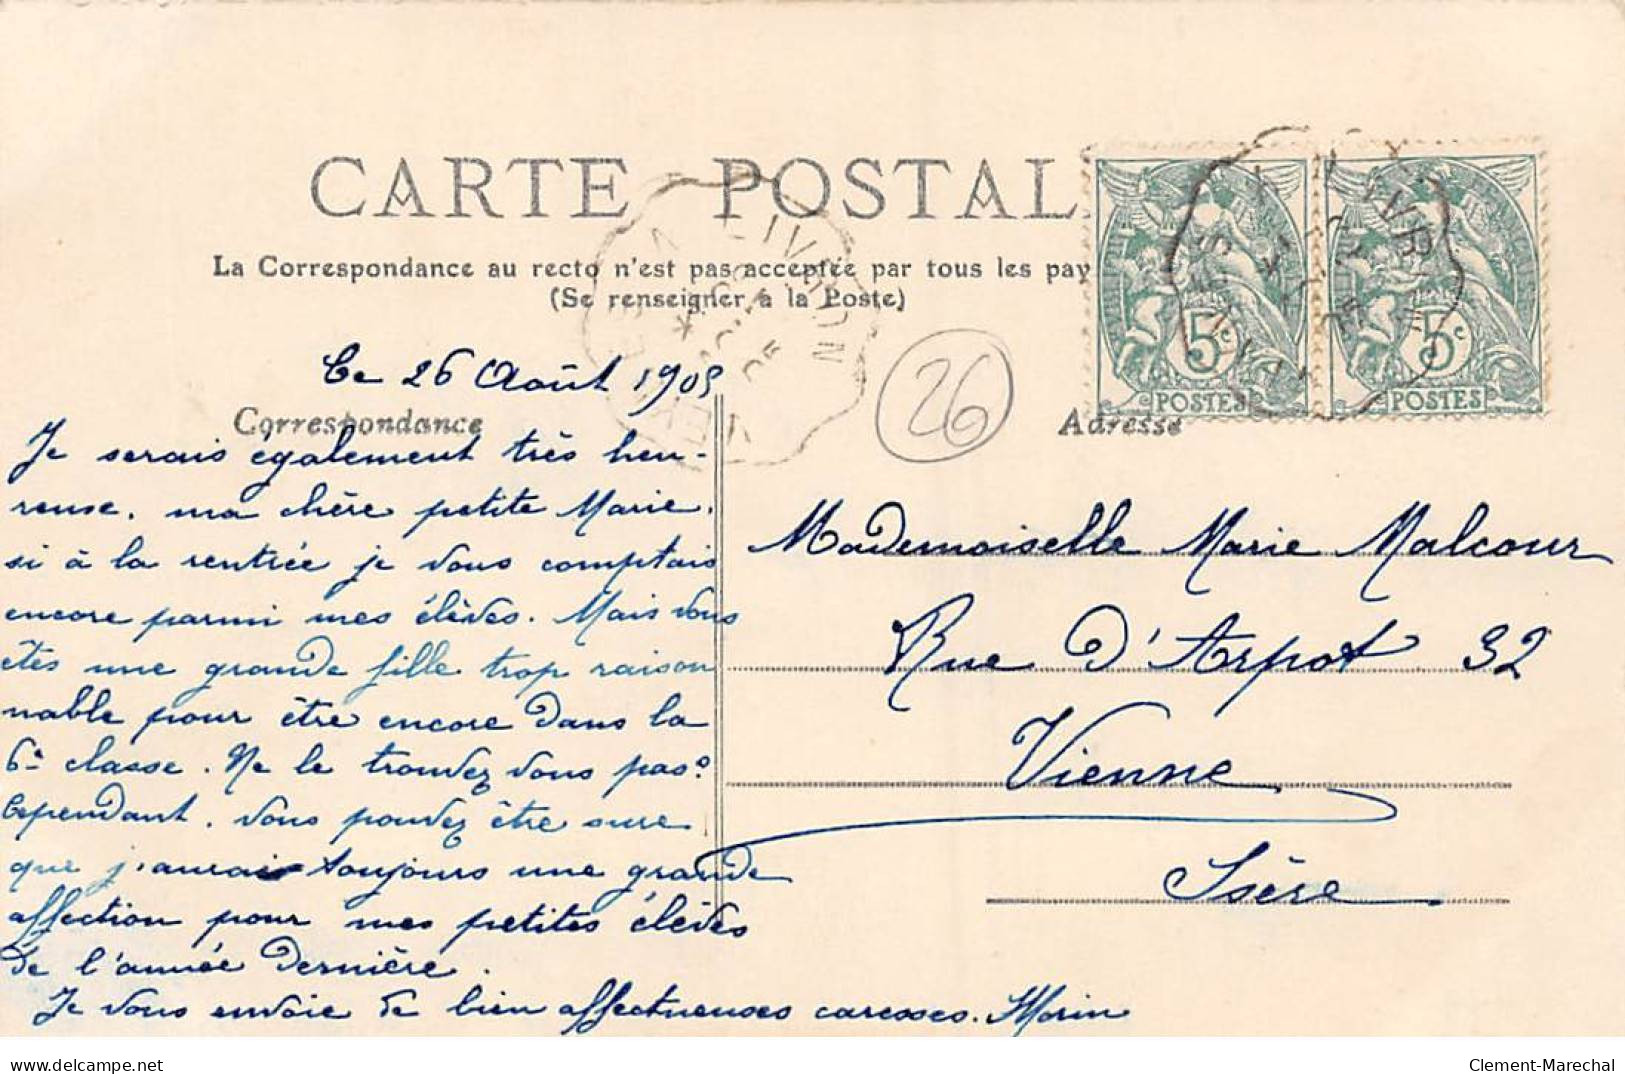 CARTE POSTAL
La Correspondance au recto n'est pas acceptée par tous les pay
(Se renseigner à la Poste)
LIVRON
5c
POSTES
5c
POSTES
26
Ce 26 Août 1905
Correspondance
Adresse
Je serais également très heu-
reuse, ma chère petite Marie,
si à la rentrée je vous comptais
encore parmi mes élèves. Mais vous
êtes une grande fille trop raison
nable pour être encore dans la
6e classe. Ne le trouvez vous pas?
Cependant, vous pouvez être sure
que j'aurai toujours une grande
affection pour mes petites élèves
de l'année dernière.
Je vous envoie de bien affectueuses caresses. Morin
Mademoiselle Marie Malcour
Rue d'Arpot 32
Vienne
Isère
www.delcampe.net
Clement-Marechal